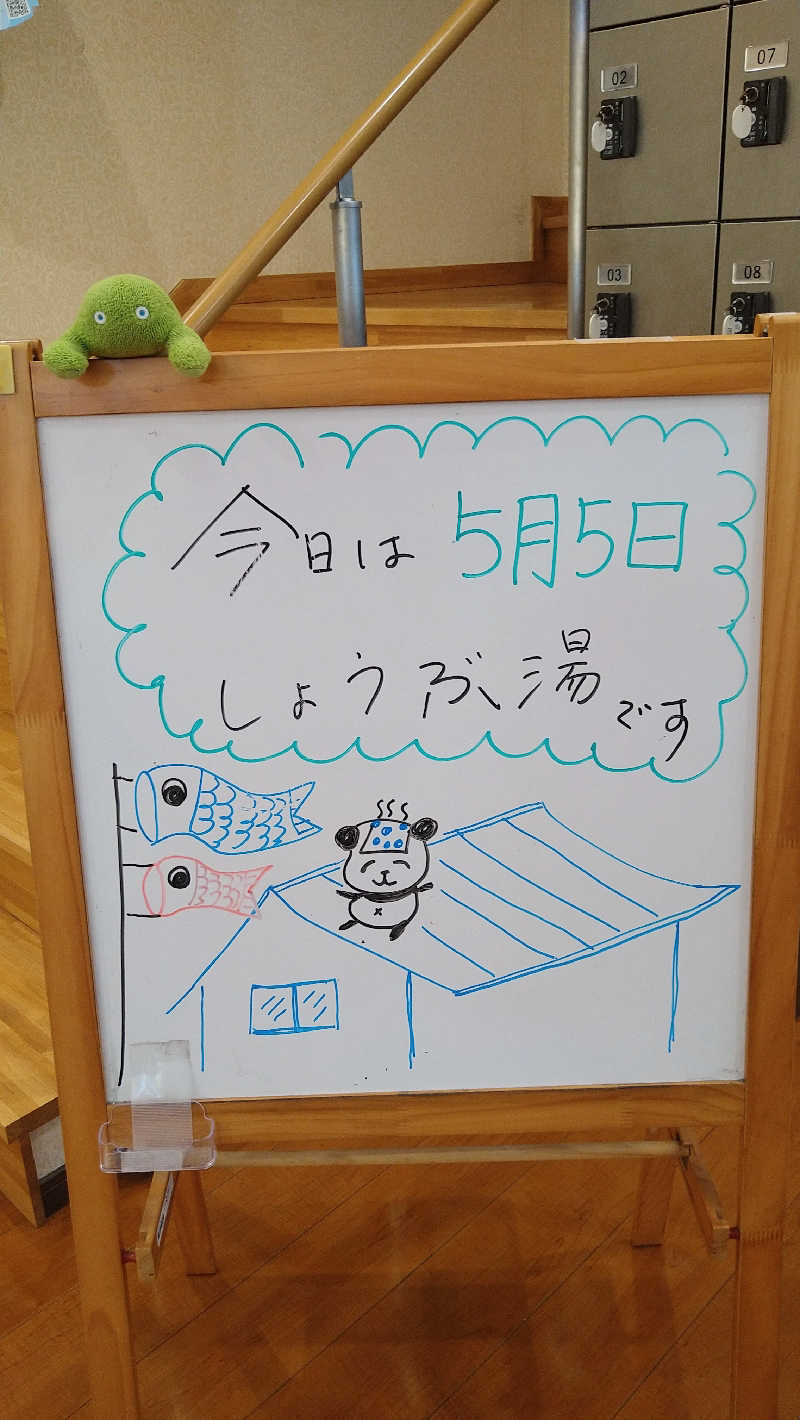 02
07
03
08
今日は 5月5日
しょうぶ湯です